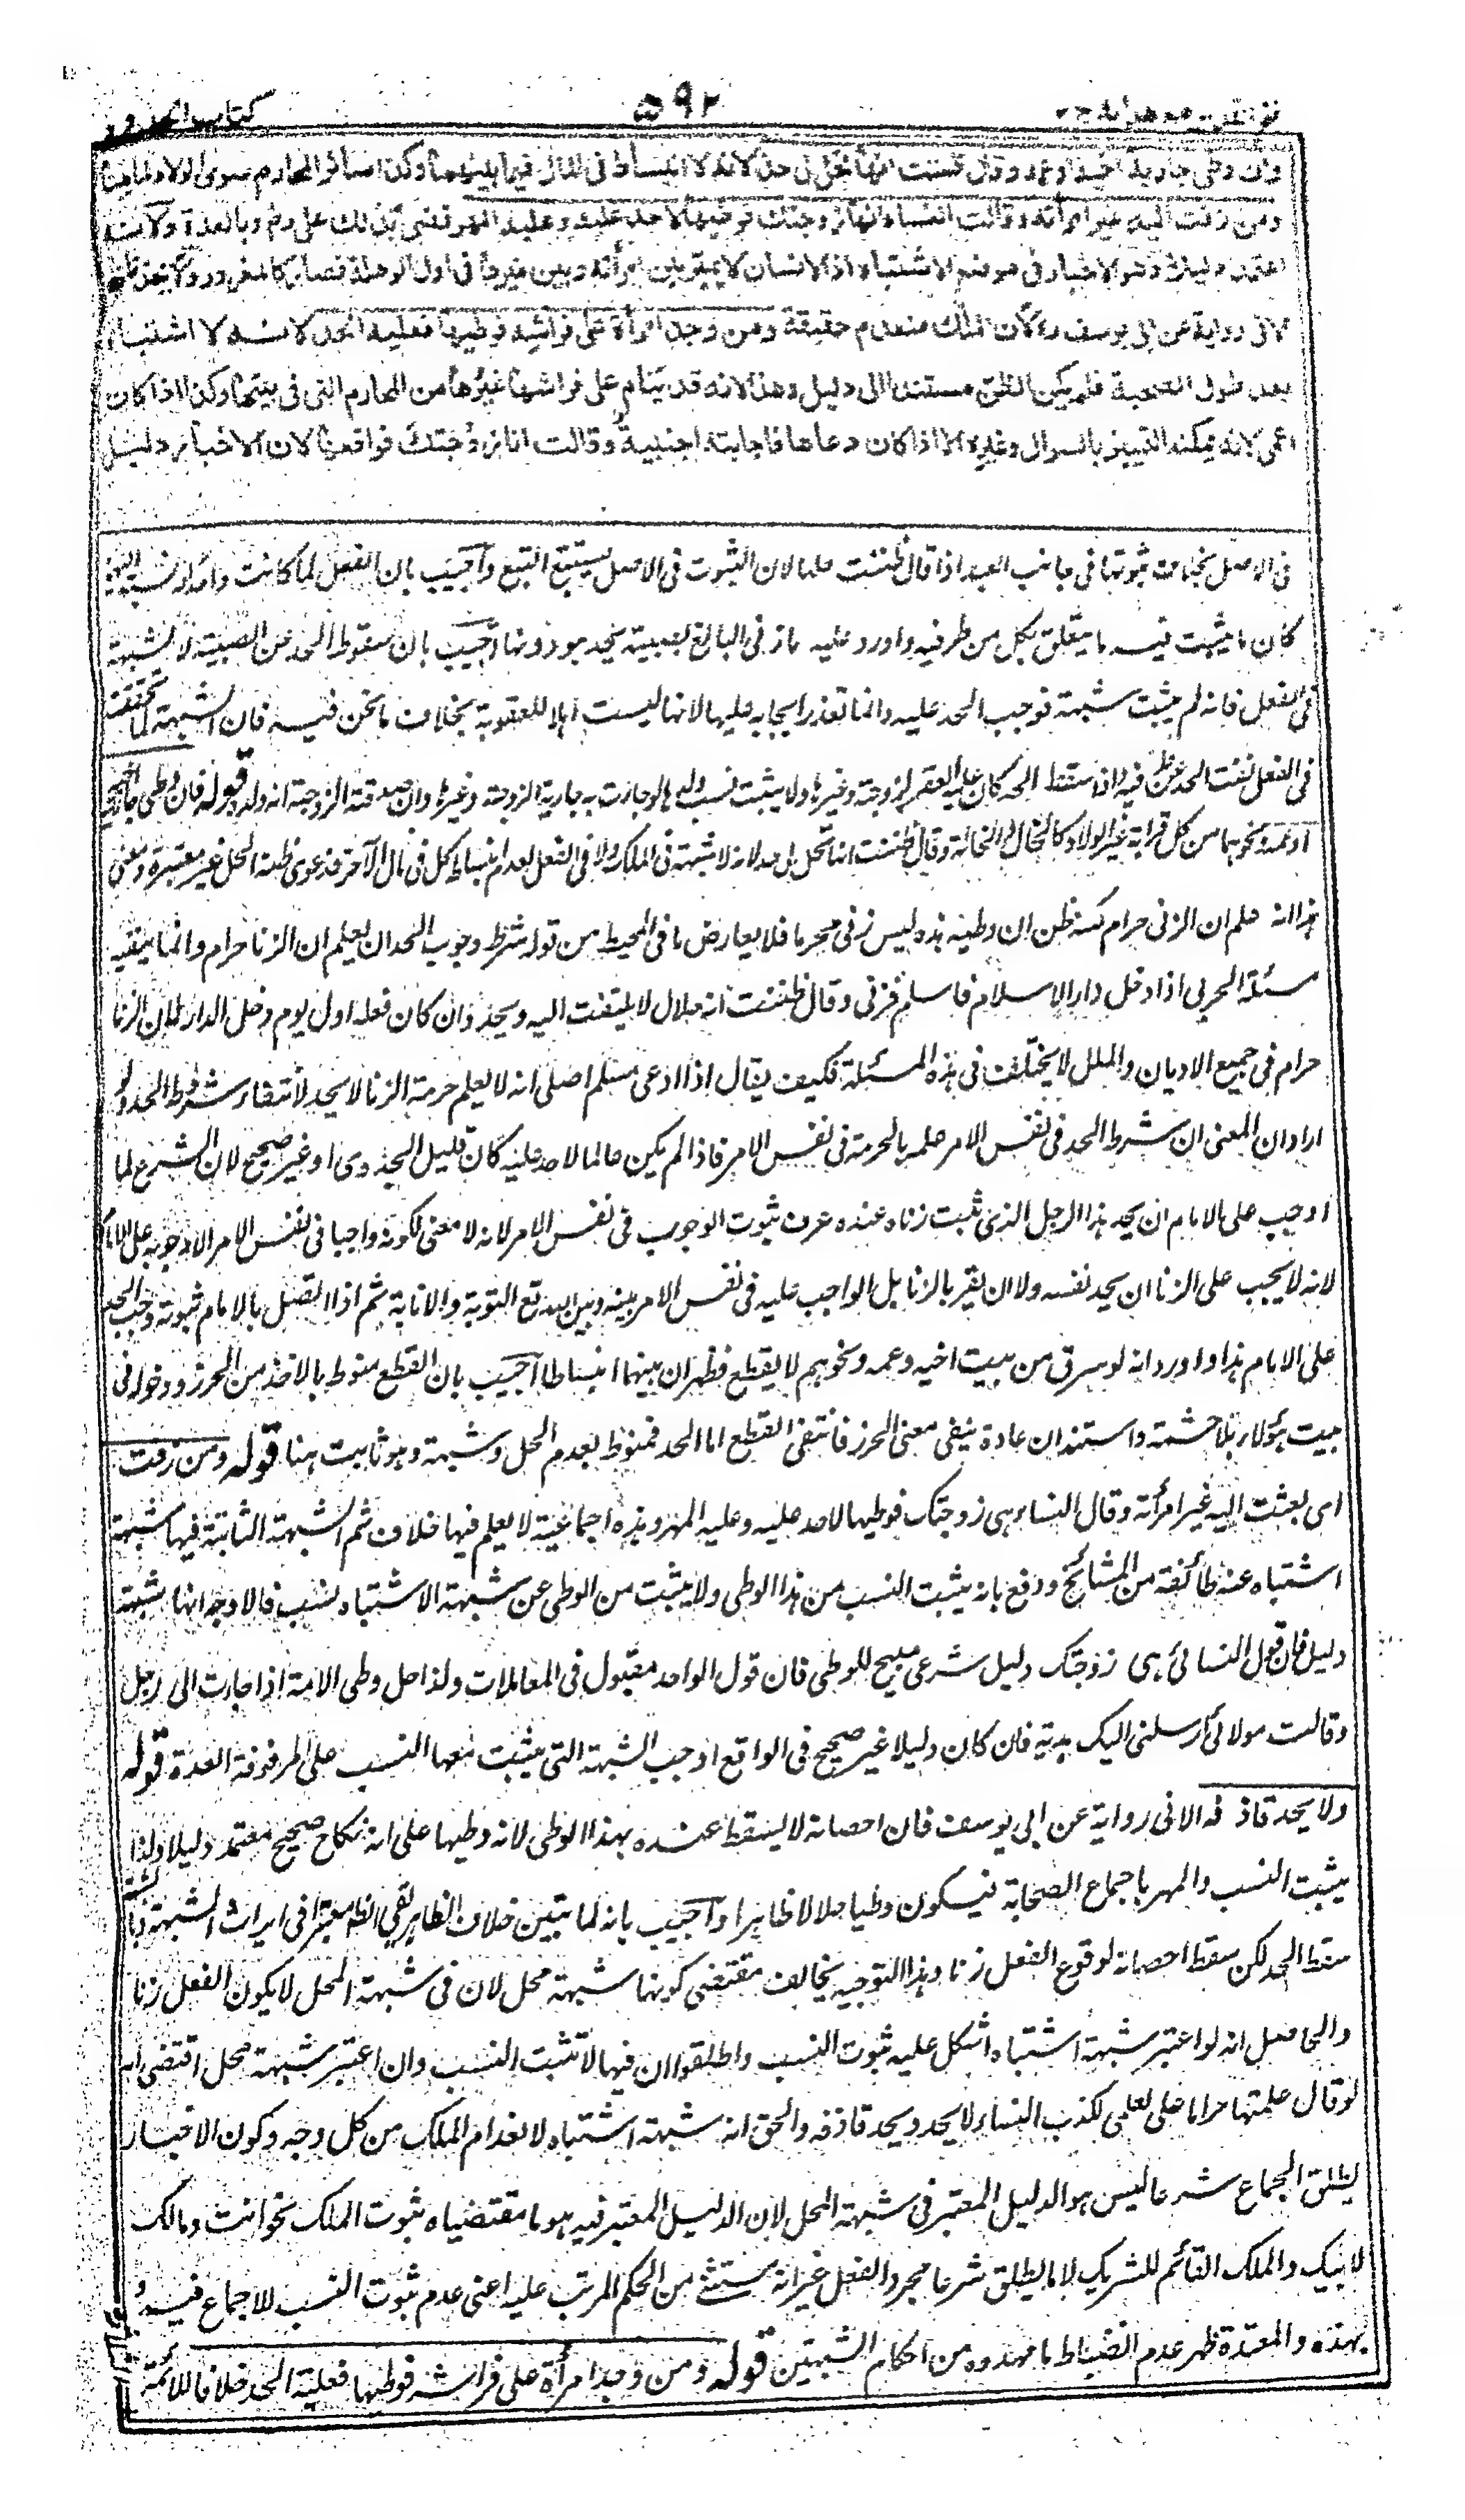 فتح القدير مع هداية ج ٢
٥٩٢
كتاب الحدود
وان وطى جارية اخيه او عمه وقال ظننت انها تحل لى حد لانه لا انبساط فى المال فيما بينهما وكذا سائر المحارم سوى الولاد لما بينا
ومن زفت اليه غير امرأته وقالت النساء انها زوجتك فوطيها لا حد عليه وعليه المهر قضى بذلك على رض وبالعدة ولانه
اعتمد دليلا وهو الاخبار فى موضع الاشتباه اذ الانسان لا يميز بين امرأته وبين غيرها فى اول الوهلة فصار كالمغرور ولا يحد قاذفه
الا فى رواية عن ابى يوسف رح لان الملك منعدم حقيقة ومن وجد امرأة على فراشه فوطيها فعليه الحد لانه لا اشتباه
بعد طول الصحبة فلم يكن الظن مستندا الى دليل وهذا لانه قد ينام على فراشها غيرها من المحارم التى فى بيتها وكذا اذا كان
اعمى لانه يمكنه التمييز بالسوال وغيره الا اذا كان دعاها فاجابته اجنبية وقالت انا زوجتك فواقعها لان الاخبار دليل
فى الاصل بخلاف ثبوتها فى جانب العبد اذا قال ظننت حلها لان الثبوت فى الاصل يستتبع التبع واجيب بان الفعل لما كانت واحدا نسبته اليهما
كان ما يثبت فيه ما يتعلق بكل من طرفيه واورد عليه ما زنى البالغ بصبية يحد هو دونها اجيب بان سقوط الحد عن الصبية لا لشبهة
فى الفعل فانه لم يثبت شبهة فوجب الحد عليه وانما تعذر ايجابه عليها لانها ليست اهلا للعقوبة بخلاف ما نحن فيه فان الشبهة لما تحققت
فى الفعل نفت الحد عن طرفيه واذا سقط الحد كان عليه العقر لزوجته وغيرها ولا يثبت نسب ولدها لو جاءت به جارية الزوجة وغيرها وان صدقته الزوجة انه ولده قوله فان وطى جارية اخيه
او عمه ونحوهما من كل قرابة غير الولاد كالخال والخالة وقال ظننت انها تحل لى حد لانه لا شبهة فى الملك ولا فى الفعل لعدم انبساط كل فى مال الآخر فدعوى ظنه الحل غير معتبرة ومعنى
هذا انه علم ان الزنى حرام لكنه ظن ان وطيه هذه ليس زنى محرما فلا يعارض ما فى المحيط من قوله شرط وجوب الحد ان يعلم ان الزنا حرام وانما ينفيه
مسئلة الحربى اذا دخل دار الاسلام فاسلم فزنى وقال ظننت انه حلال لا يلتفت اليه ويحد وان كان فعله اول يوم دخل الدار لان الزنا
حرام فى جميع الاديان والملل لا يختلف فى هذه المسئلة فكيف يقال اذا ادعى مسلم اصلى انه لا يعلم حرمة الزنا لا يحد لانتفاء شرط الحد ولو
اراد ان المعنى ان شرط الحد فى نفس الامر علمه بالحرمة فى نفس الامر فاذا لم يكن عالما لا حد عليه كان قليل الجدوى او غير صحيح لان الشرع لما
اوجب على الامام ان يحد هذا الرجل الذى ثبت زناه عنده عرف ثبوت الوجوب فى نفس الامر لانه لا معنى لكونه واجبا فى نفس الامر الا وجوبه على الامام
لانه لا يجب على الزنا ان يحد نفسه ولا ان يقر بالزنا بل الواجب عليه فى نفس الامر بينه وبين الله تع التوبة والانابة ثم اذا اتصل بالامام ثبوته وجب الحد
على الامام هذا واورد انه لو سرق من بيت اخيه وعمه ونحوهم لا يقطع فظهر ان بينهما انبساطا اجيب بان القطع منوط بالاخذ من الحرز ودخوله فى
بيت هؤلاء بلا حشمة واستئذان عادة ينفى معنى الحرز فانتفى القطع اما الحد فمنوط بعدم الحل وشبهة وهو ثابت هنا قوله ومن زفت
اى بعثت اليه غير امرأته وقال النساء هى زوجتك فوطيها لا حد عليه وعليه المهر وهذه اجماعية لا يعلم فيها خلاف ثم الشبهة الثابتة فيها شبهة
اشتباه عند طائفة من المشائخ ودفع بانه يثبت النسب من هذا الوطى ولا يثبت من الوطى عن شبهة الاشتباه نسب فالاوجه انها شبهة
دليل فان قول النسائ هى زوجتك دليل شرعى مبيح للوطى فان قول الواحد مقبول فى المعاملات ولذا حل وطى الامة اذا جاءت الى رجل
وقالت مولائى ارسلنى اليك هدية فان كان دليلا غير صحيح فى الواقع اوجب الشبهة التى يثبت معها النسب على المزفوفة العدة قوله
ولا يحد قاذفه الا فى رواية عن ابى يوسف فان احصانه لا يسقط عنده بهذا الوطى لانه وطيها على انه نكاح صحيح معتمدا دليلا ولذا
يثبت النسب والمهر باجماع الصحابة فيكون وطيا حلالا ظاهرا واجيب بانه لما تبين خلاف الظاهر بقى الظاهر معتبرا فى ايراث الشبهة وبالشبهة
سقط الحد لكن سقط احصانه لوقوع الفعل زنا وهذا التوجيه يخالف مقتضى كونها شبهة محل لان فى شبهة المحل لا يكون الفعل زنا
والحاصل انه لو اعتبر شبهة اشتباه اشكل عليه ثبوت النسب واطلقوا ان فيها لا تثبت النسب وان اعتبر شبهة محل اقتضى انه
لو قال علمتها حراما على لعلمى لكذب النساء لا يحد ويحد قاذفه والحق انه شبهة اشتباه لانعدام الملك من كل وجه وكون الاخبار
يطلق الجماع شرعا ليس هو الدليل المعتبر فى شبهة المحل لان الدليل المعتبر فيه هو ما مقتضياه ثبوت الملك نحو انت ومالك
لابيك والملك القائم للشريك لا ما يطلق شرعا مجرد الفعل غير انه مستثنى من الحكم المرتب عليه اعنى عدم ثبوت النسب للاجماع فيه و
بهذه والمعتدة ظهر عدم انضباط ما مهدوه من احكام الشبهتين قوله ومن وجد امرأة على فراشه فوطيها فعليه الحد خلافا للائمة